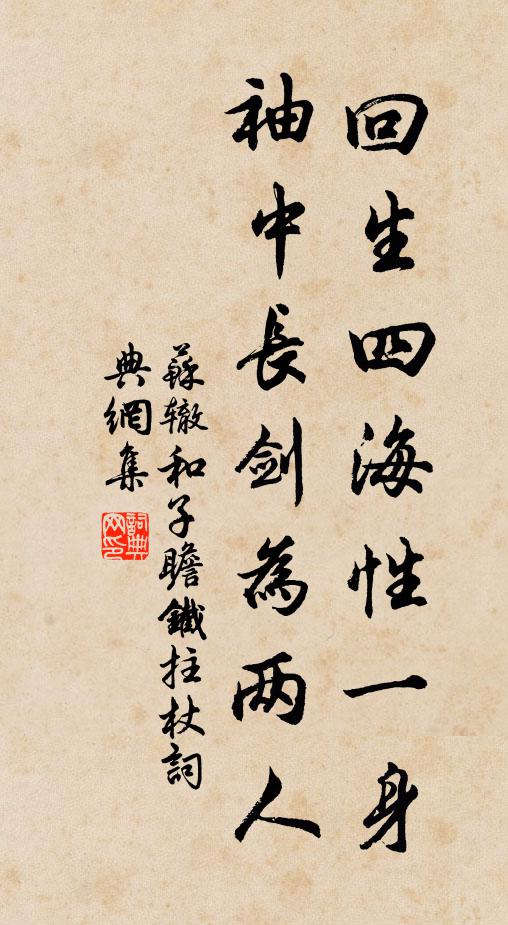 回生四海性一身
袖中長劍為两人
蘇轍和子瞻鐵拄杖詞
典網集
詞典
网印